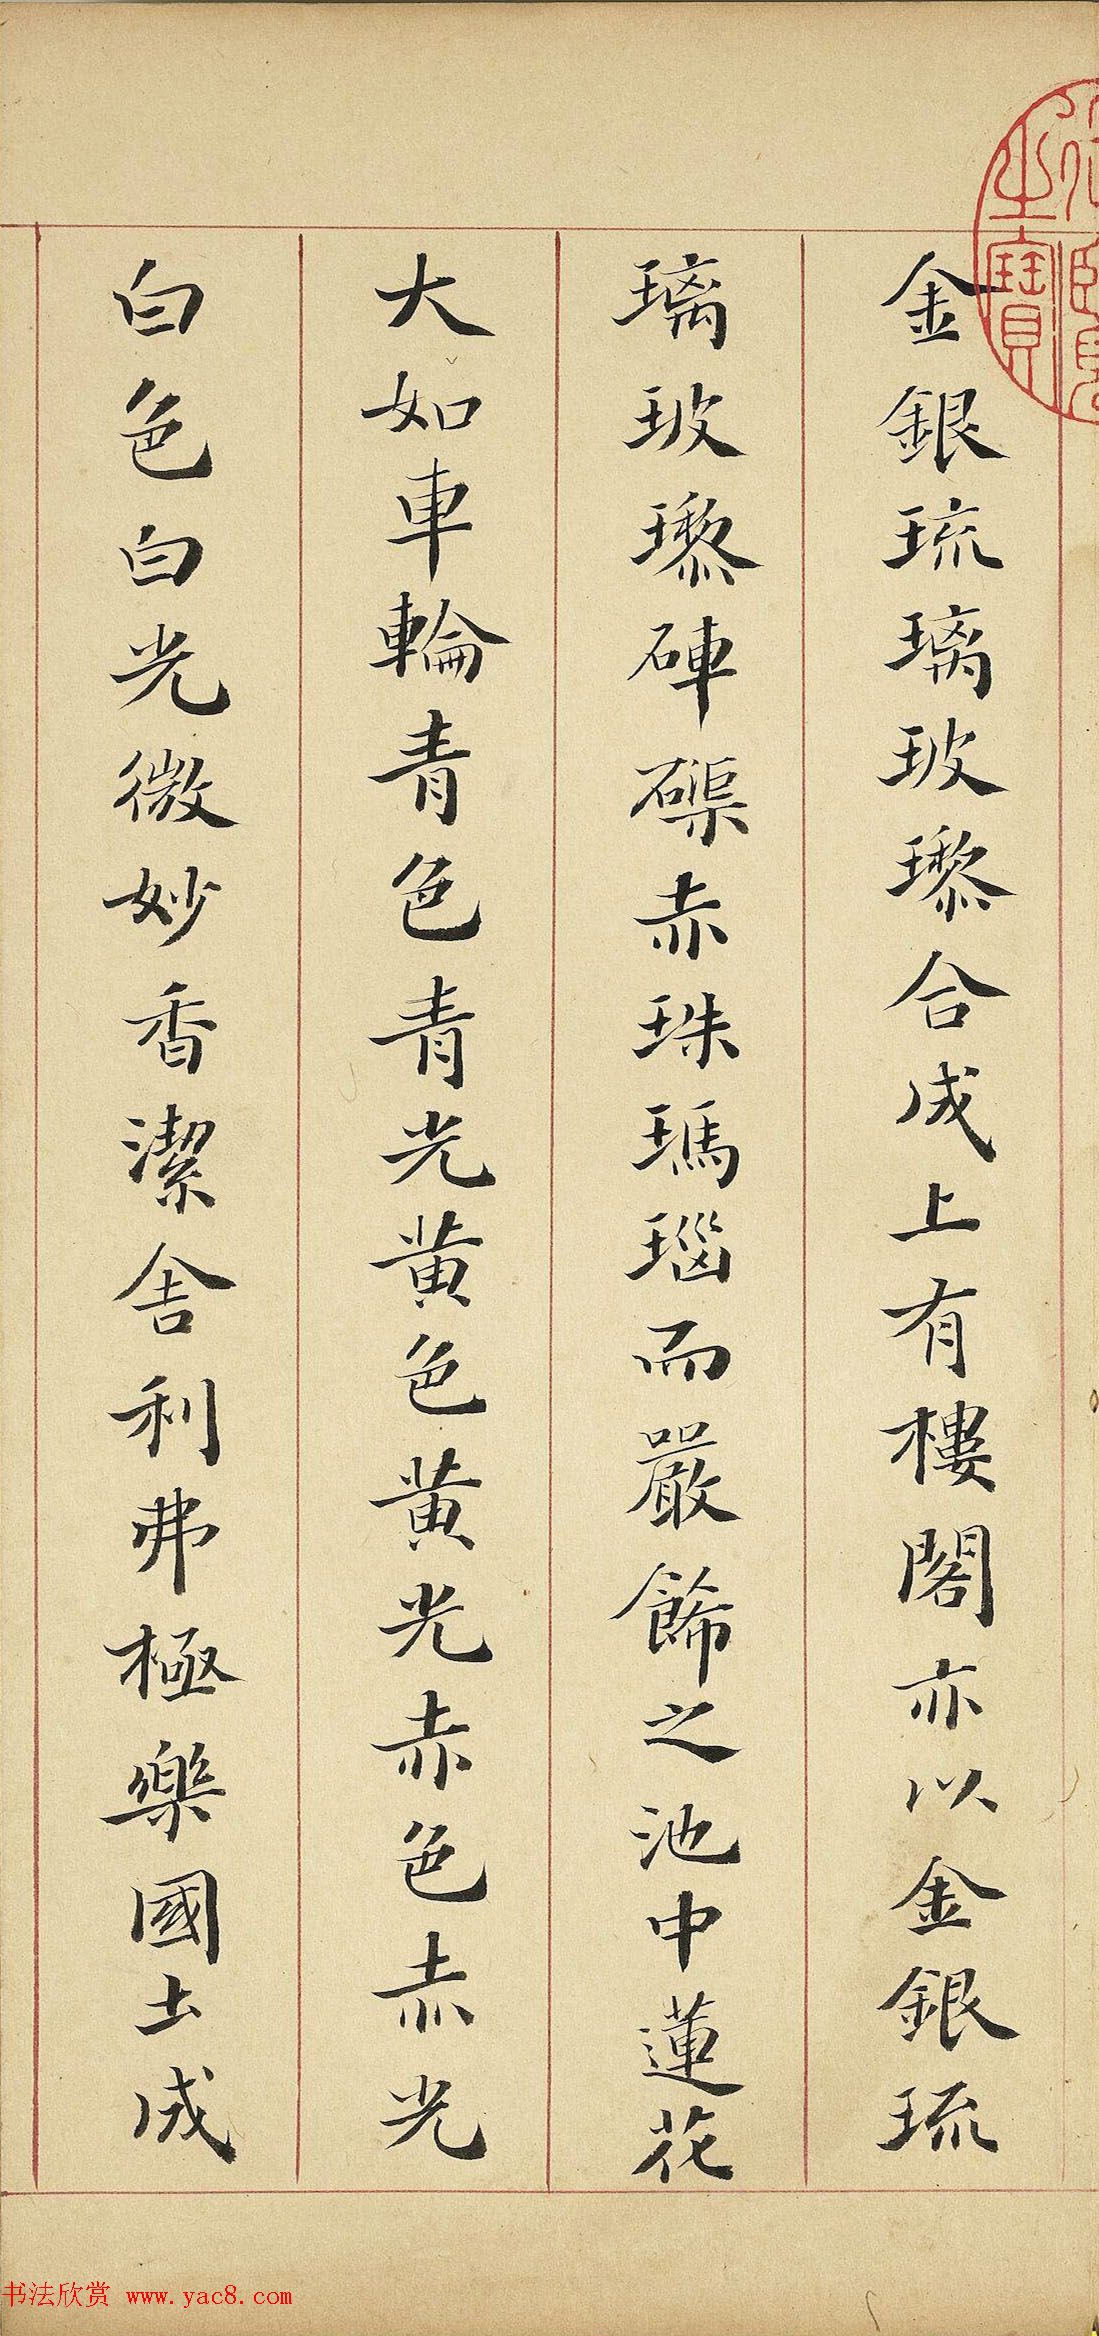 金銀琉璃玻瓈合成上有樓閣亦以金銀琉
璃玻瓈硨磲赤珠瑪瑙而嚴飾之池中蓮花
大如車輪青色青光黃色黃光赤色赤光
白色白光微妙香潔舍利弗極樂國土成
书法欣赏 www.yac8.com